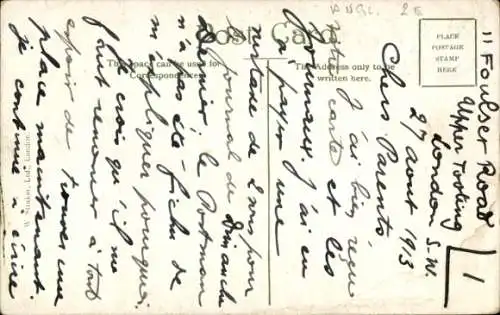 ANGL. 25
Post Card.
This space can be used for
Correspondence
The Address only to be
written here.
PLACE
POSTAGE
STAMP
HERE
11 Foulser Road
Upper Tooting
London S.W.
27 août 1913
1
Chers Parents
J'ai bien reçu
votre carte et les
journaux. J'ai eu
à payer une
surtaxe de 2 sous pour
le journal de Dimanche
dernier; le Postman
n'a pas de fichu de
m'expliquer pourquoi.
Je crois qu'il me
faut renoncer à tout
espoir de trouver une
place maintenant.
Je continue à écrire
London.